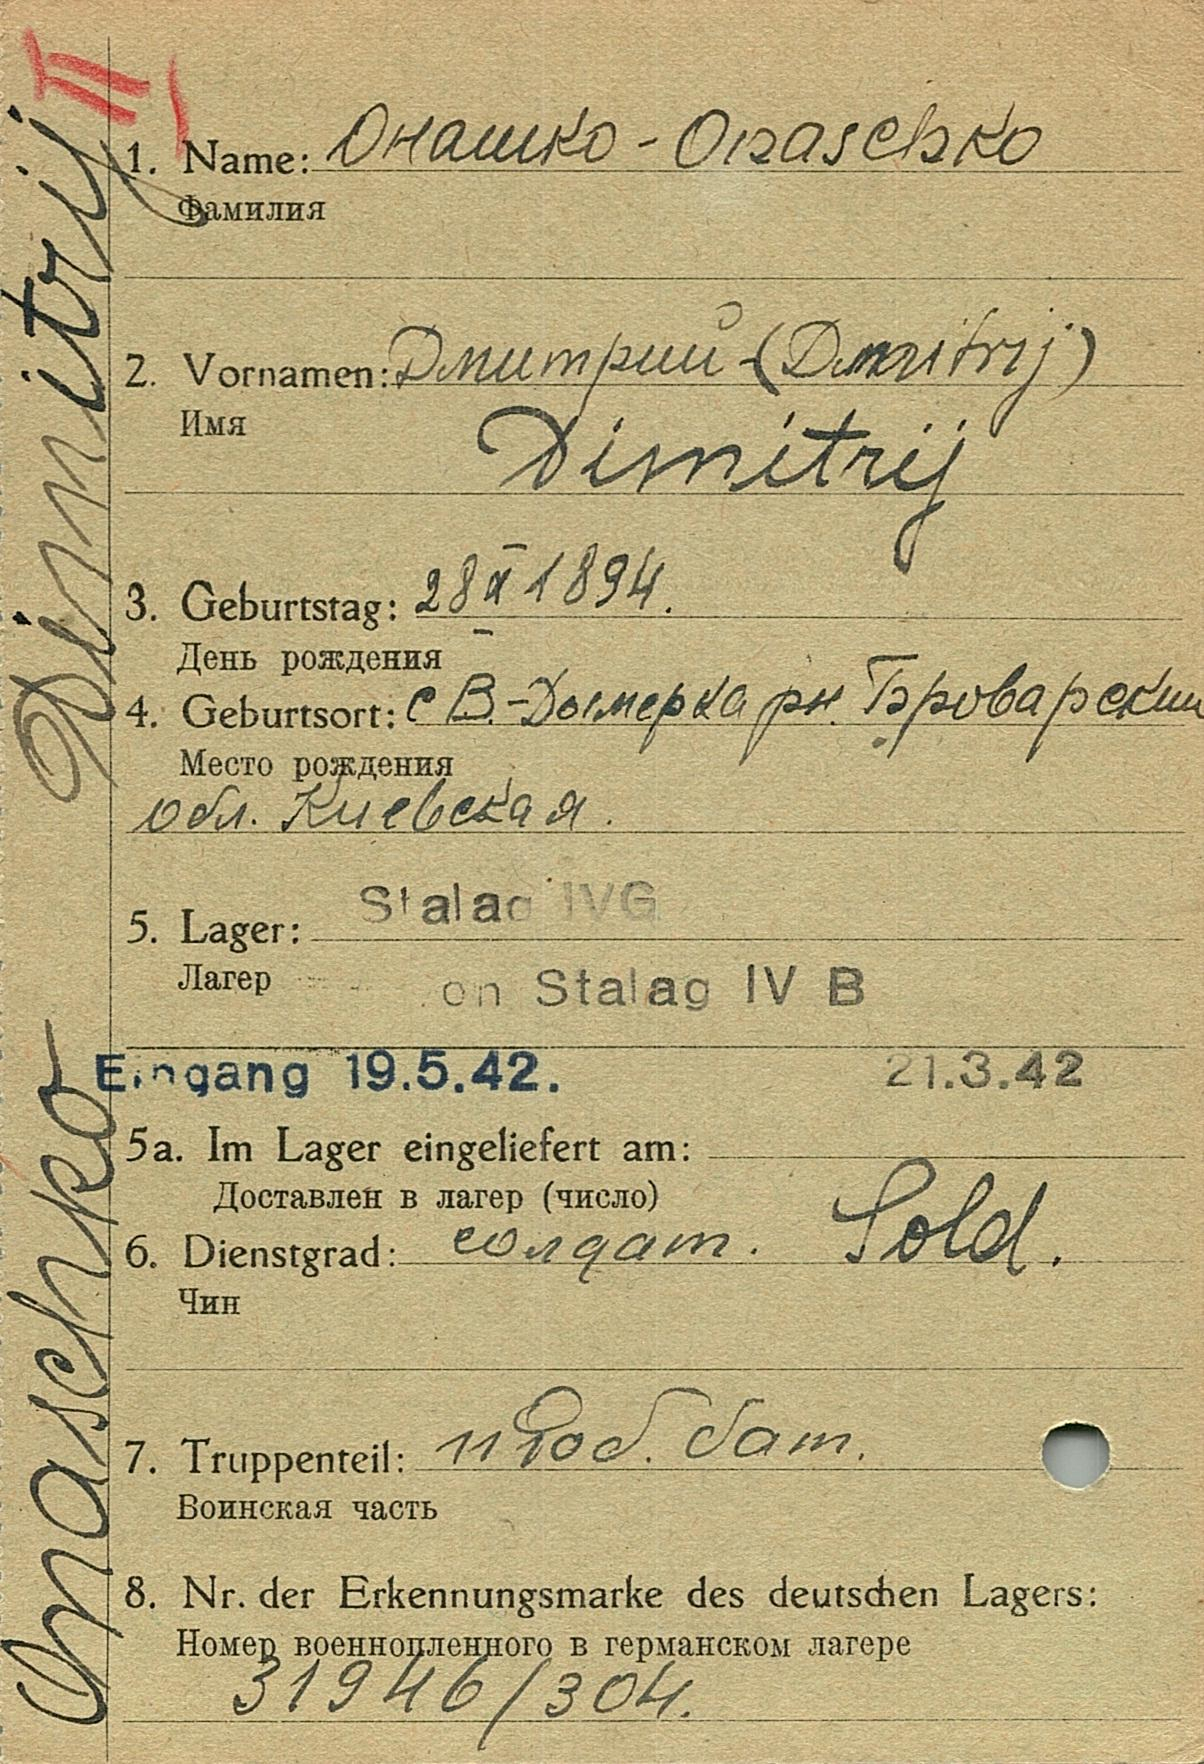 II
Onaschko Dimitrij
1. Name: Онашко - Onaschko
Фамилия
2. Vornamen: Дмитрий - (Dmitrij)
Имя
Dimitrij
3. Geburtstag: 28 X 1894.
День рождения
4. Geburtsort: с В.-Дымерка рн. Броварский
Место рождения
обл. Киевская.
Stalag IVG
5. Lager:
Лагер
on Stalag IV B
Eingang 19.5.42. 21.3.42
5a. Im Lager eingeliefert am:
Доставлен в лагер (число)
6. Dienstgrad: солдат. Sold.
Чин
7. Truppenteil: 11 раб. бат.
Воинская часть
8. Nr. der Erkennungsmarke des deutschen Lagers:
Номер военнопленного в германском лагере
31946/304.